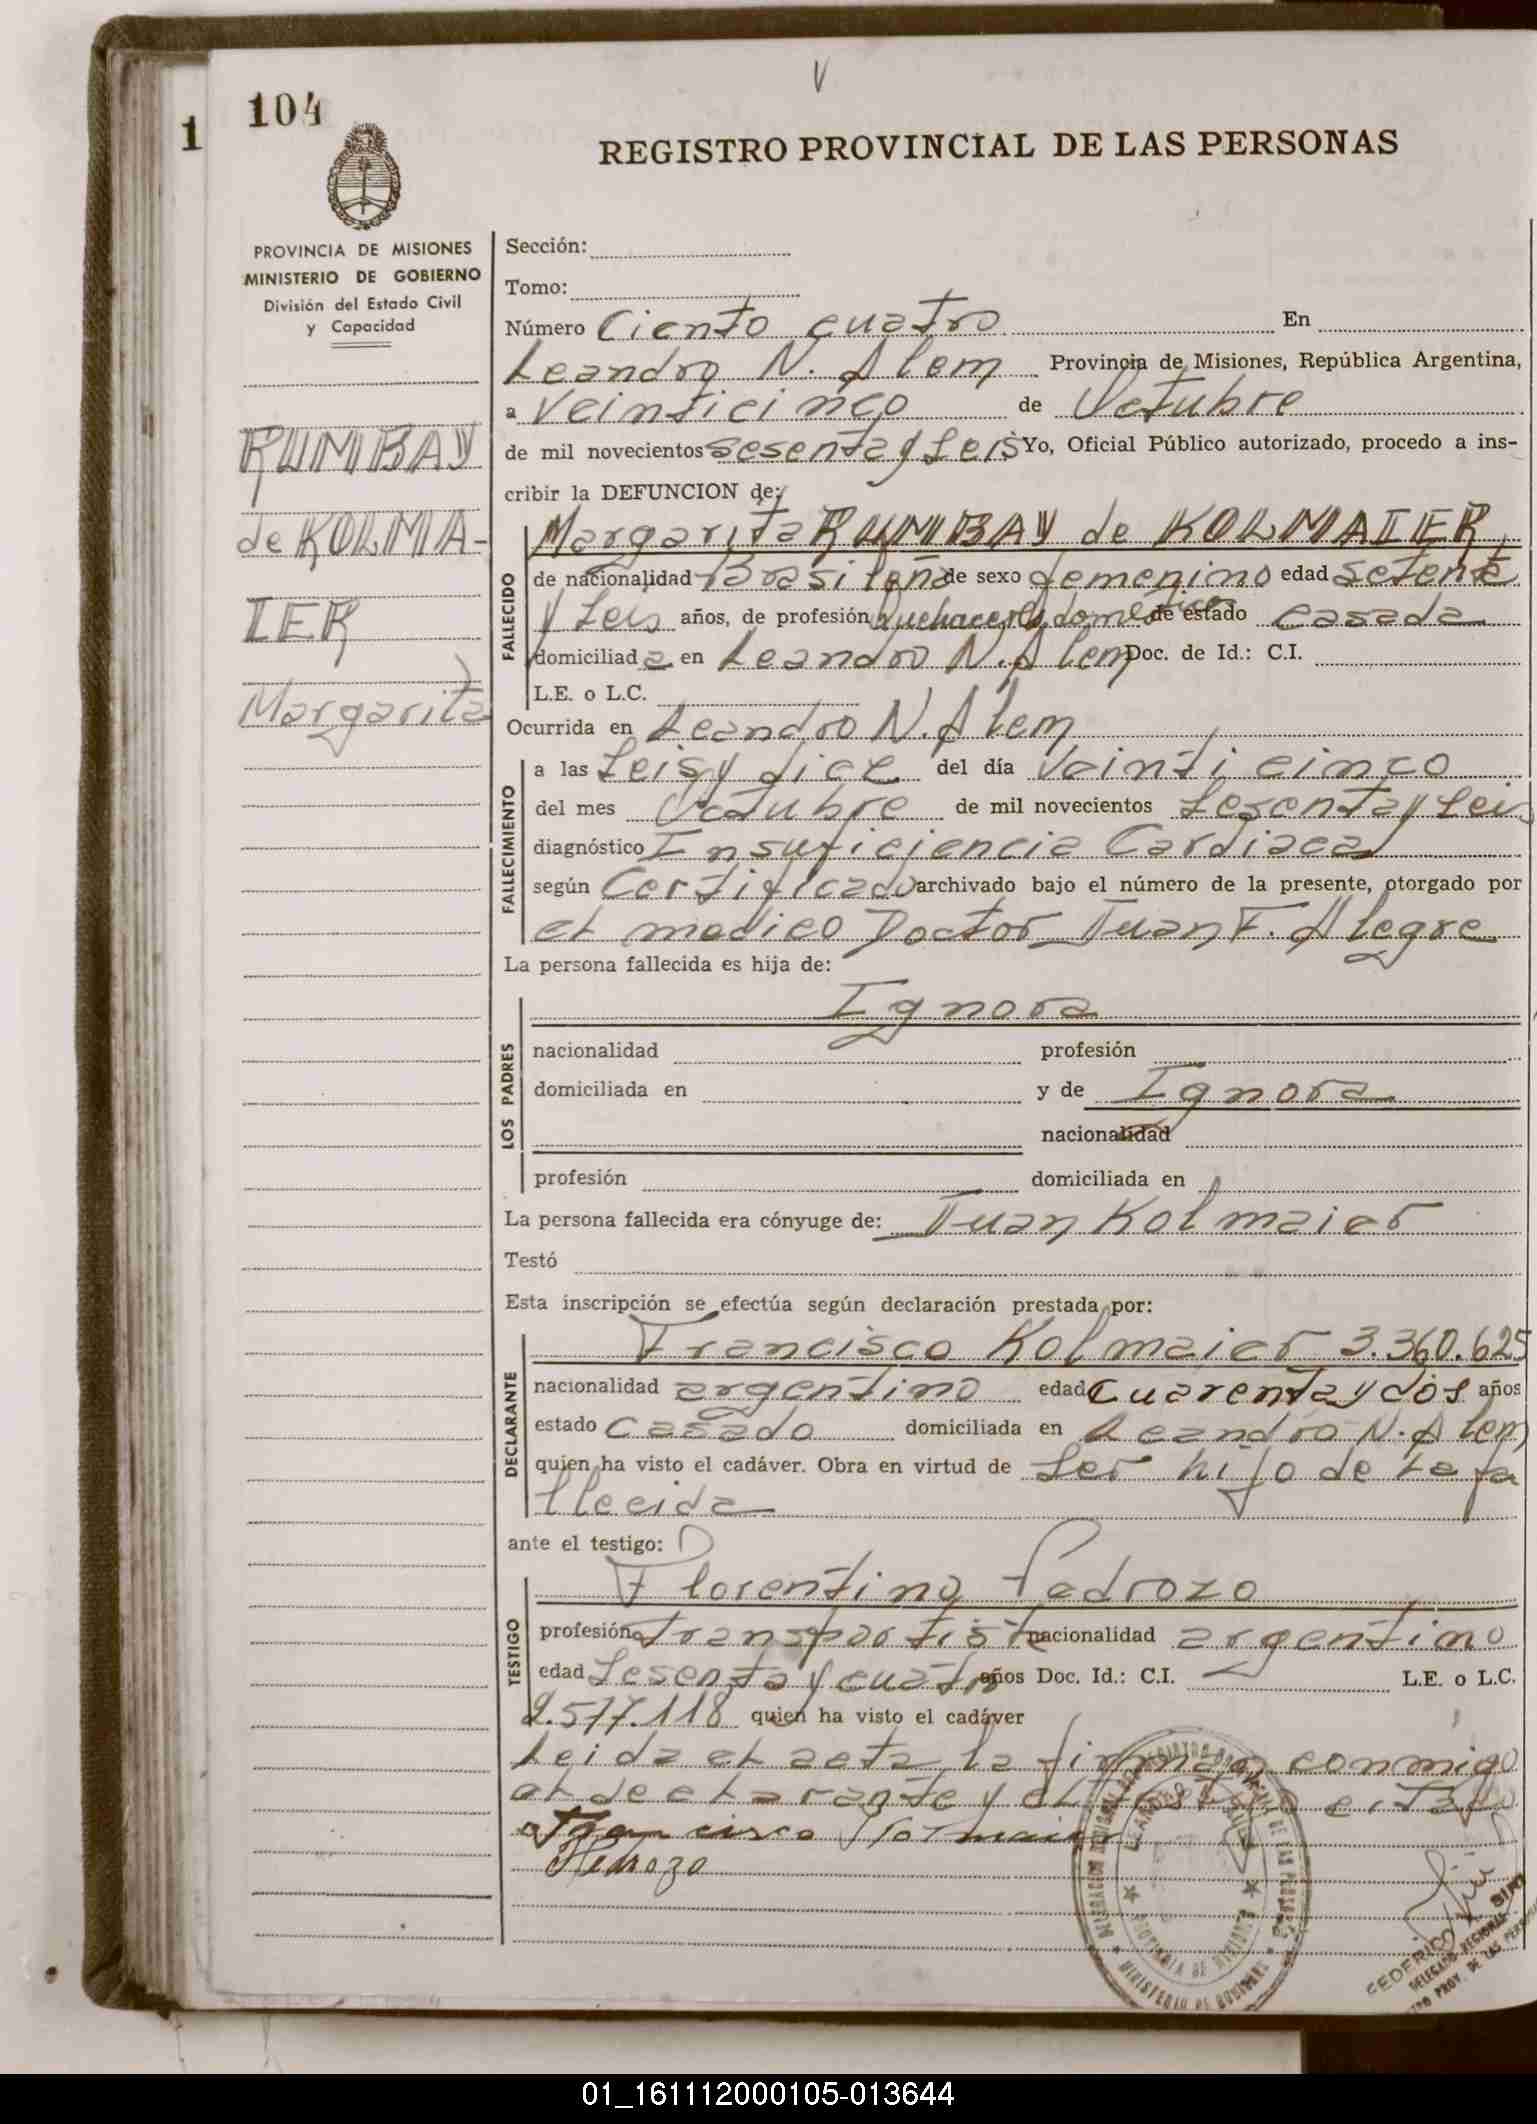 V
104
1
REGISTRO PROVINCIAL DE LAS PERSONAS
PROVINCIA DE MISIONES
MINISTERIO DE GOBIERNO
División del Estado Civil
y Capacidad
RUMBAY
de KOLMA-
IER
Margarita
Sección:
Tomo:
Número Ciento cuatro En
Leandro N. Alem Provincia de Misiones, República Argentina,
a Veinticinco de Octubre
de mil novecientos sesenta y seis Yo, Oficial Público autorizado, procedo a ins-
cribir la DEFUNCION de:
FALLECIDO
Margarita RUMBAY de KOLMAIER
de nacionalidad Brasileña de sexo femenino edad setenta
y seis años, de profesión Quehaceres domésticos de estado casada
domiciliada en Leandro N. Alem Doc. de Id.: C.I.
L.E. o L.C.
Ocurrida en Leandro N. Alem
FALLECIMIENTO
a las seis y diez del día Veinticinco
del mes Octubre de mil novecientos sesenta y seis
diagnóstico Insuficiencia Cardiaca
según Certificado archivado bajo el número de la presente, otorgado por
el medico Doctor Juan F. Alegre
La persona fallecida es hija de:
LOS PADRES
Ignora
nacionalidad profesión
domiciliada en y de Ignora
nacionalidad
profesión domiciliada en
La persona fallecida era cónyuge de: Juan Kolmaier
Testó
Esta inscripción se efectúa según declaración prestada por:
DECLARANTE
Francisco Kolmaier 3.360.625
nacionalidad argentino edad cuarenta y dos años
estado casado domiciliada en Leandro N. Alem
quien ha visto el cadáver. Obra en virtud de ser hijo de la fa
llecida
ante el testigo: D
TESTIGO
Florentino Pedrozo
profesión transportista nacionalidad argentino
edad sesenta y cuatro años Doc. Id.: C.I. L.E. o L.C.
2.577.118 quien ha visto el cadáver
Leida el acta la firman conmigo
el declarante y el testigo citado
Francisco Kolmaier
Pedrozo
PROVINCIA DE MISIONES
MINISTERIO DE GOBIERNO
FEDERICO
DELEGADO REGIONAL
PROV. DE LAS PERS
01_161112000105-013644